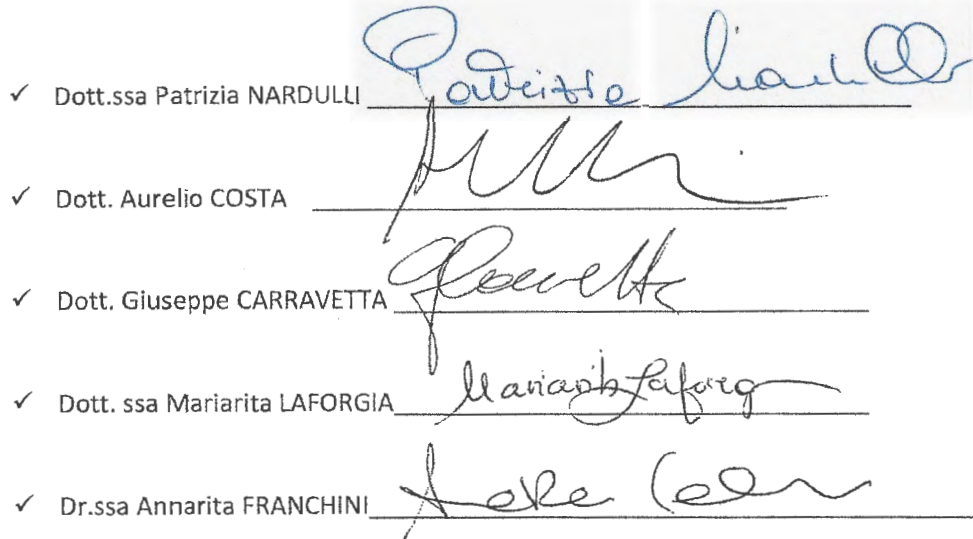 ✓ Dott.ssa Patrizia NARDULLI Patrizia Nardulli
✓ Dott. Aurelio COSTA
✓ Dott. Giuseppe CARRAVETTA
✓ Dott. ssa Mariarita LAFORGIA Mariarita Laforgia
✓ Dr.ssa Annarita FRANCHINI